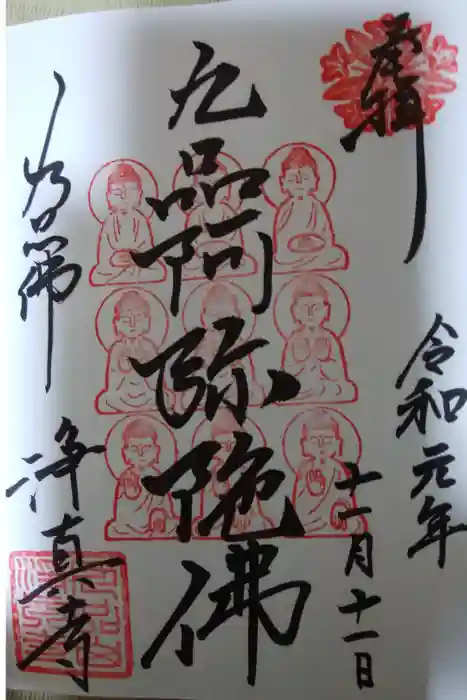 奉拝
令和元年
十一月十一日
九品阿弥陀佛
九品佛
浄真寺